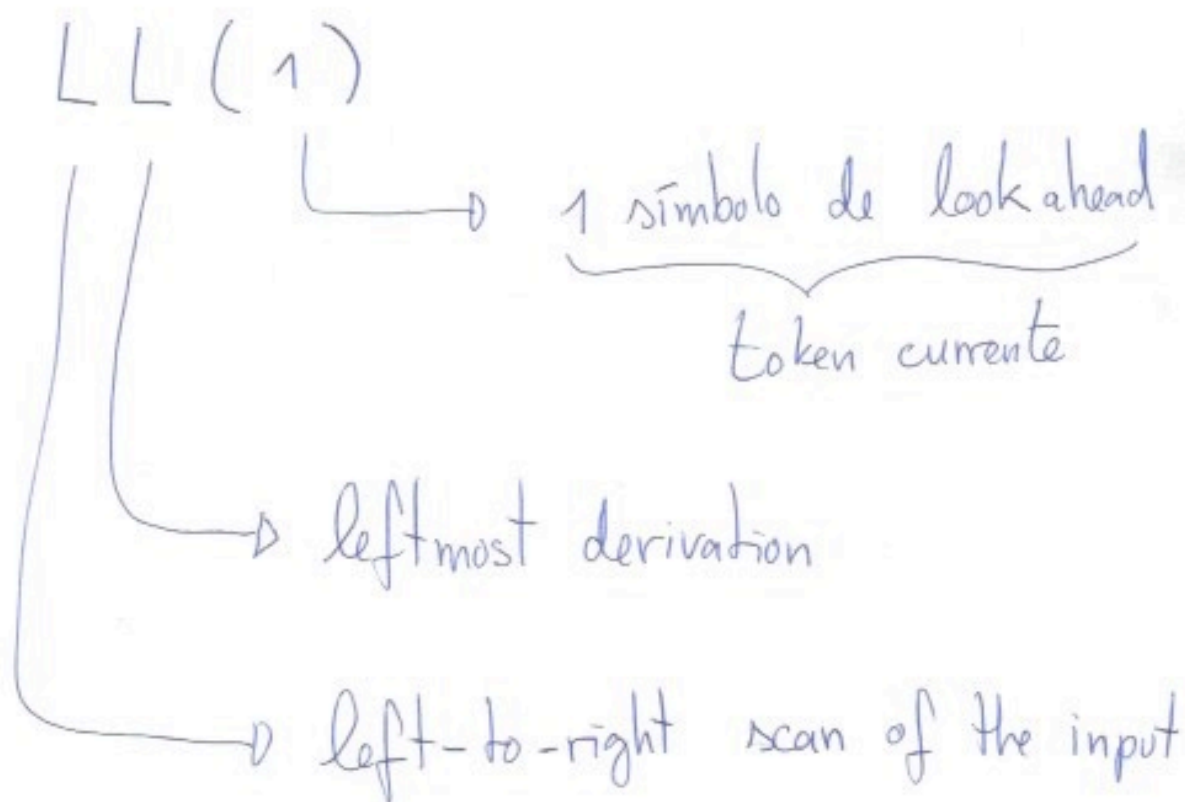 LL(1)
1 símbolo de lookahead
token currente
leftmost derivation
left-to-right scan of the input